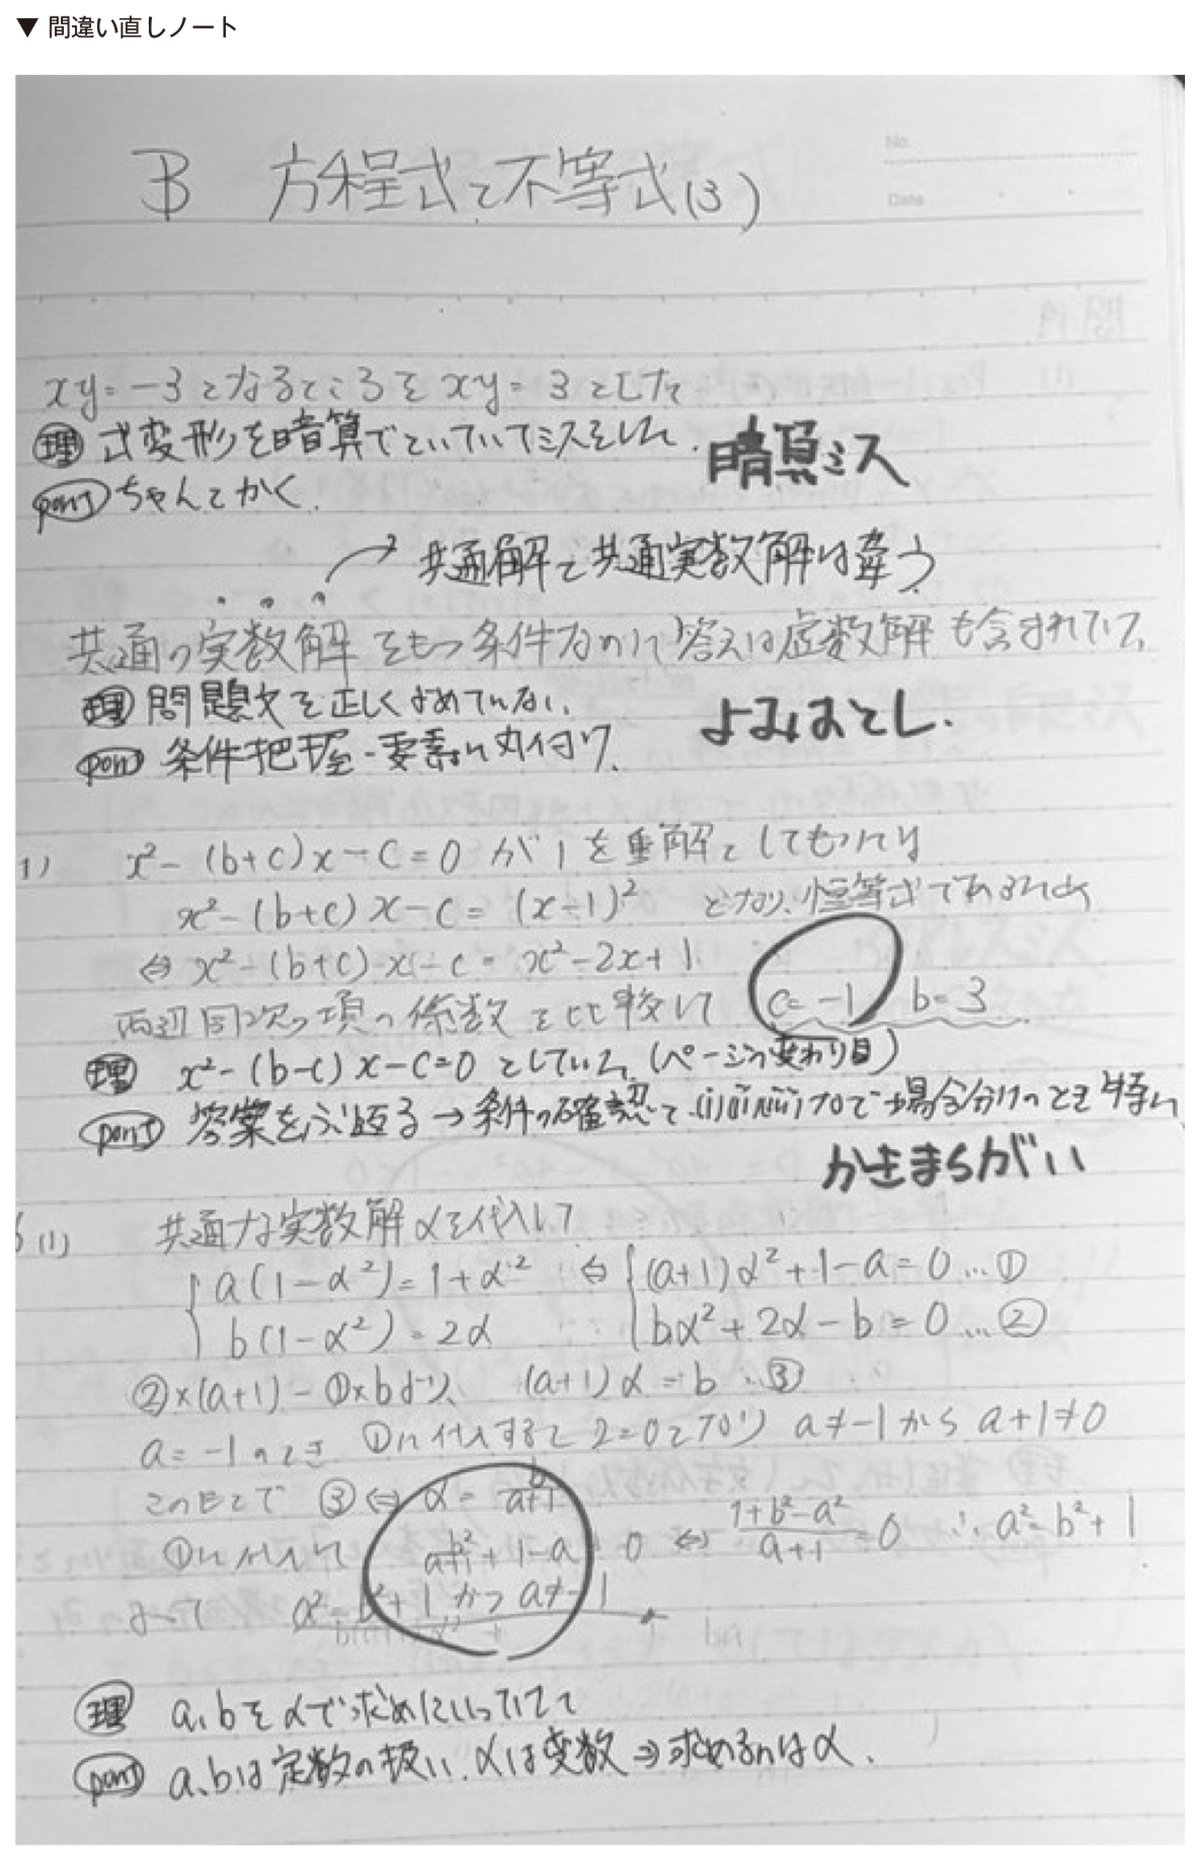 ▼ 間違い直しノート
No.
Date
B 方程式と不等式(3)
xy=-3となるところをxy=3とした
理 式変形を暗算でといていてミスをした.
point ちゃんとかく.
暗算ミス
→ 共通解と共通実数解は違う
共通の実数解をもつ条件なのに答えは虚数解も含まれていて,
理 問題文を正しくよめていない.
よみおとし.
point 条件把握・要素に丸付け.
1) x²-(b+c)x-c=0 が1を重解としてもつには
x²-(b+c)x-c=(x-1)² となり、恒等式であるため
⇔ x²-(b+c)x-c=x²-2x+1
両辺同次の項の係数を比較して c=-1 b=3
理 x²-(b-c)x-c=0 としていた.(ページの変わり目)
point 答案をふり返る→条件の確認 場合分けのとき特に
かきまちがい
(1) 共通な実数解αを代入して
a(1-α²)=1+α² ⇔ (a+1)α²+1-a=0…①
b(1-α²)=2α bα²+2α-b=0…②
②×(a+1)-①×bより、 (a+1)α=b…③
a=-1のとき ①に代入すると2=0となり a≠-1から a+1≠0
このもとで ③⇔ α=b/a+1
①に代入して b²/a+1+1-a=0 ⇔ 1+b²-a²/a+1=0 ∴ a²=b²+1
よって a²=b²+1 かつ a≠-1
理 a、bをαで求めにいっていて
point a、bは定数の扱い.αは変数⇒求めるのはα.